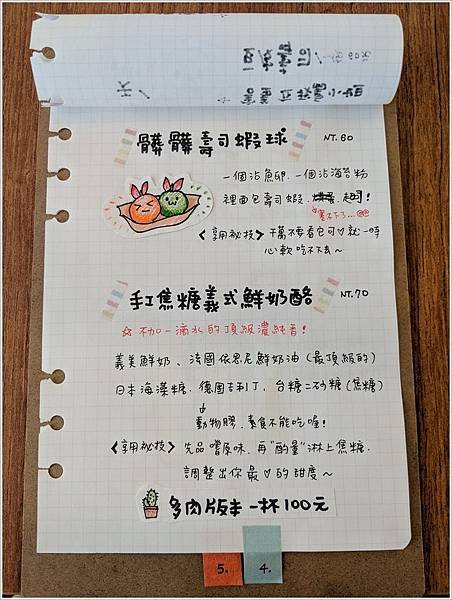 髒髒壽司蝦球 NT.60
一個沾魚卵.一個沾海苔粉
裡面包壽司蝦、
塞不下了...@@
<享用祕技> 千萬不要看它可♡就一時
心軟吃不下去~
手工焦糖義式鮮奶酪 NT.70
☆不加一滴水的頂級濃純香!
義美鮮奶、法國依思尼鮮奶油(最頂級的)
日本海藻糖、德國吉利丁、台糖二砂糖(焦糖)
動物膠.素食不能吃喔!
<享用祕技> 先品嚐原味.再"酌量"淋上焦糖.
調整出你最♡的甜度~
多肉版本 一杯100元
5. 4.